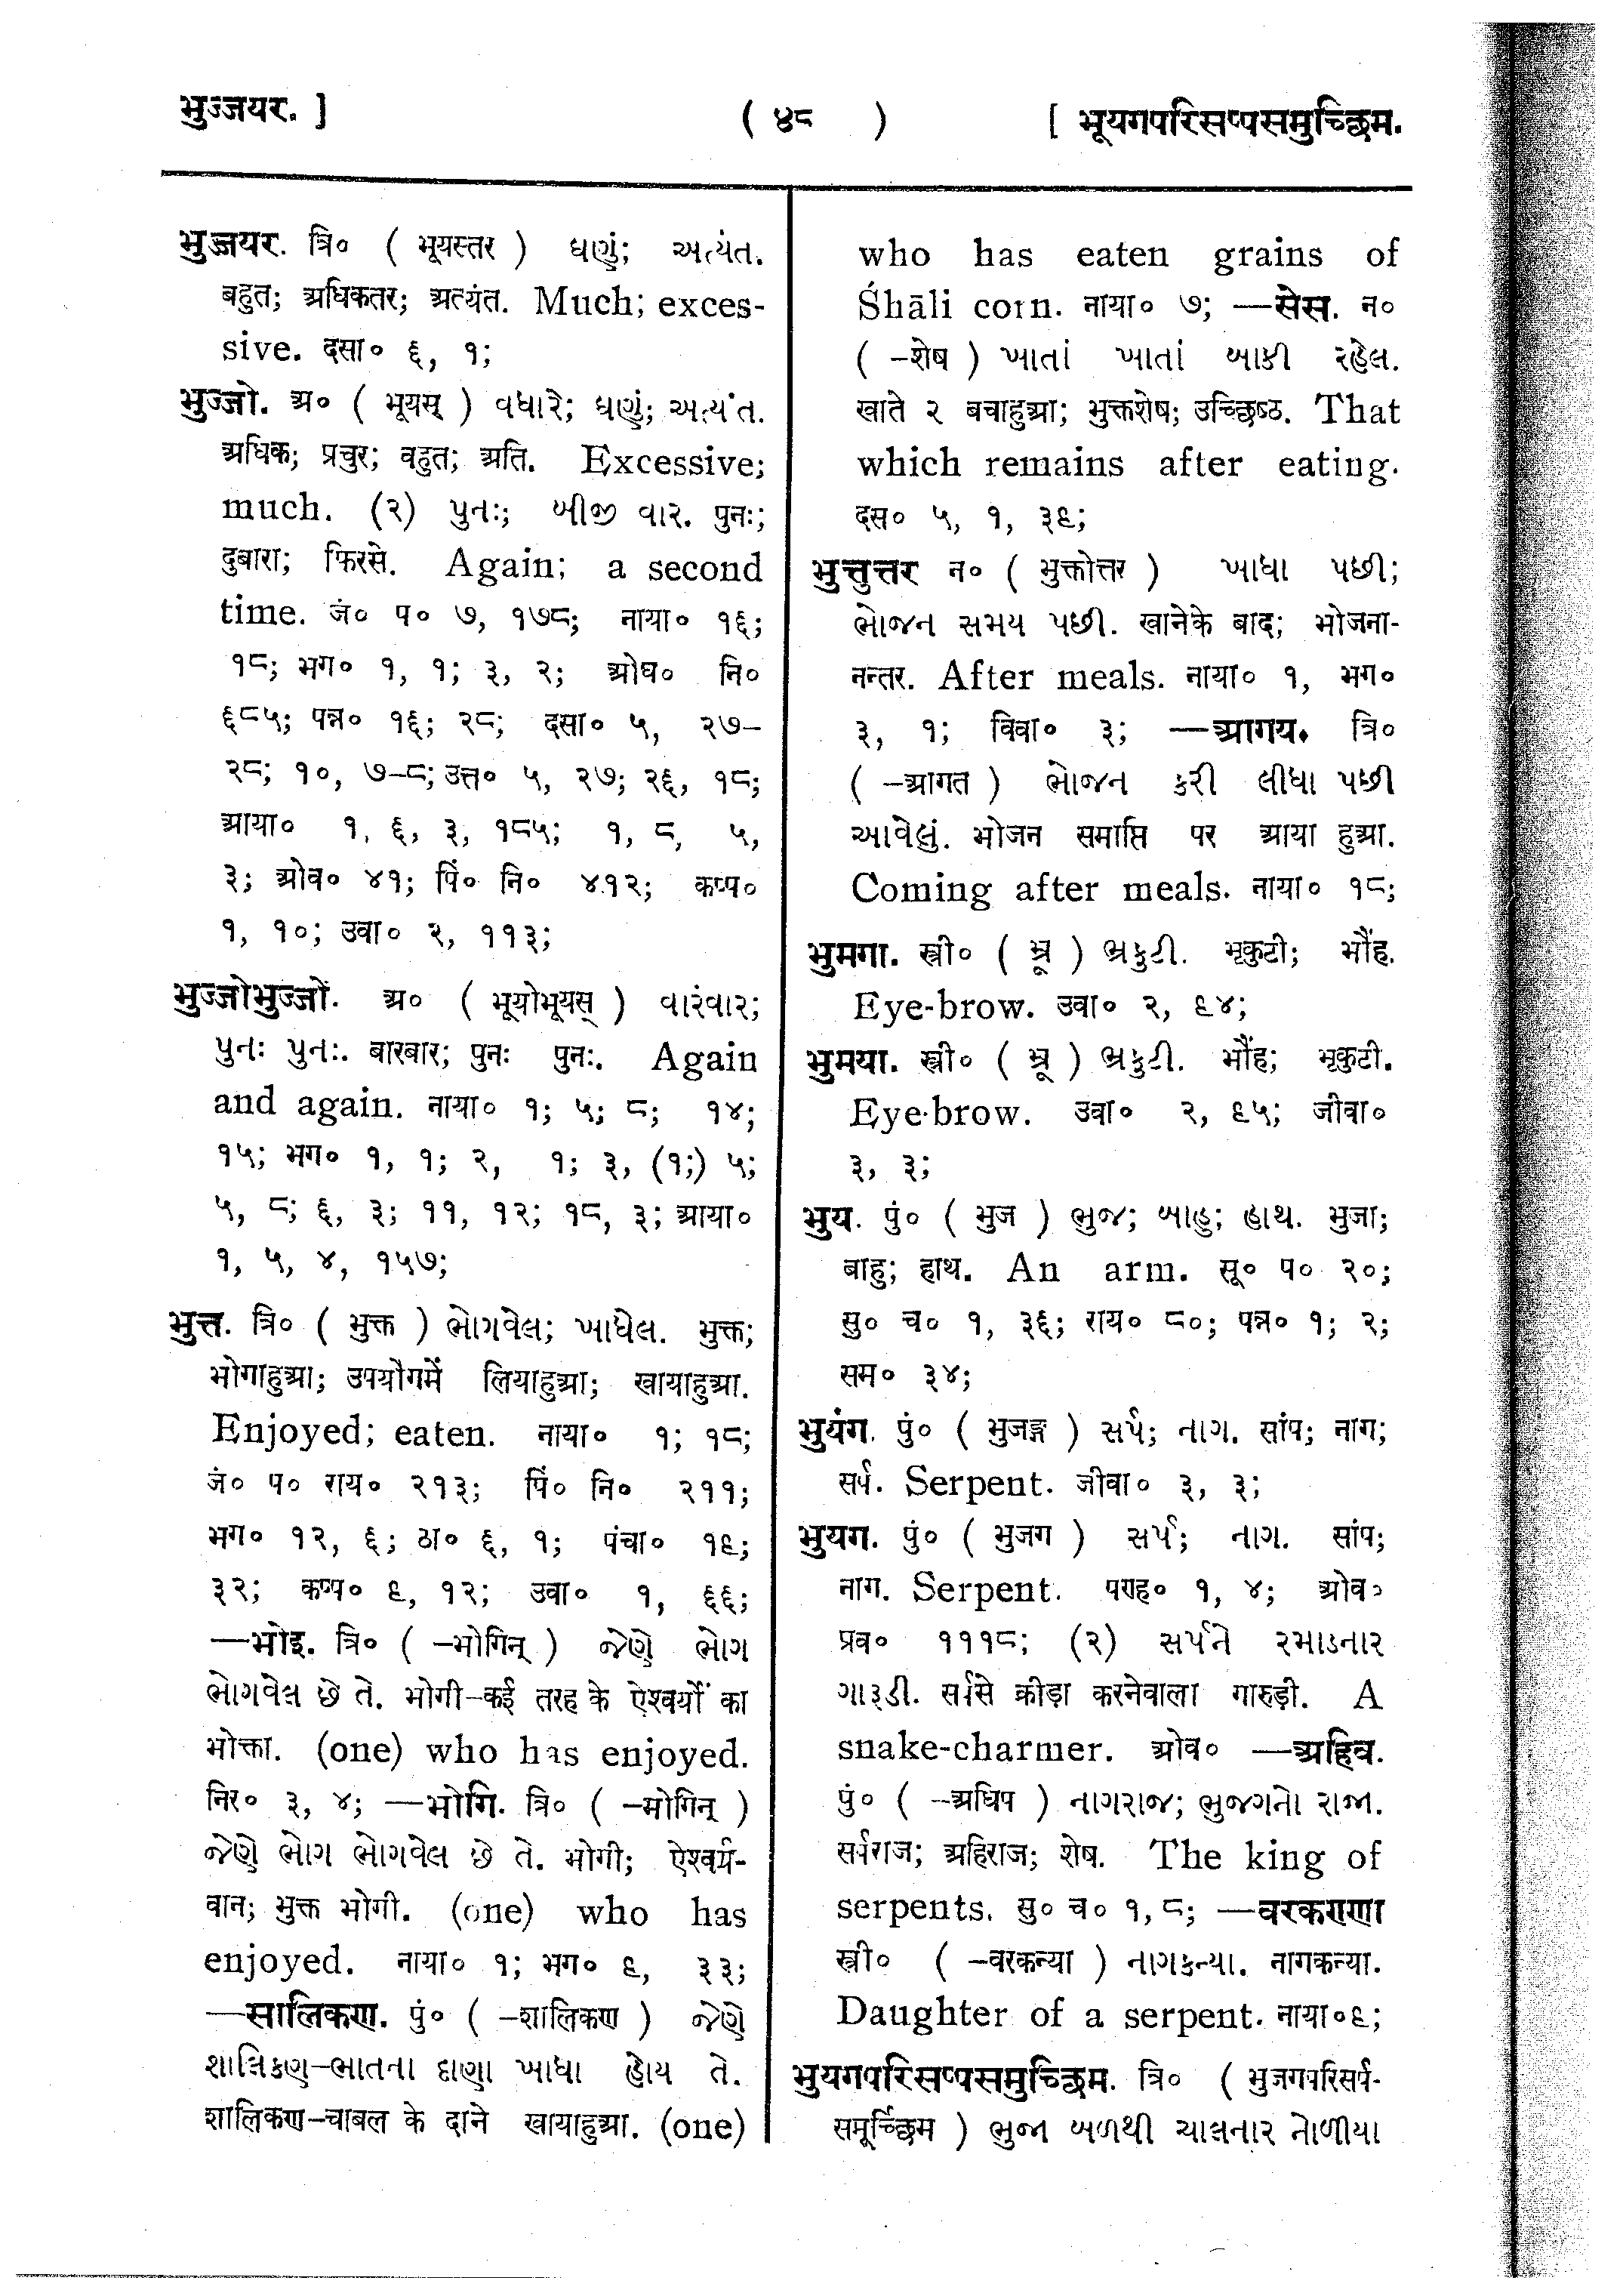 भुज्जयर. ]
( ४८ )
[ भूयगपरिसप्पसमुच्छिम.
भुज्जयर. त्रि० ( भूयस्तर ) ઘણું; અત્યંત.
बहुत; अधिकतर; अत्यंत. Much; exces-
sive. दसा० ६, १;
भुज्जो. अ० ( भूयस् ) વધારે; ઘણું; અત્યંત.
अधिक; प्रचुर; बहुत; अति. Excessive;
much. (२) પુનઃ; બીજી વાર. पुनः;
दुबारा; फिरसे. Again; a second
time. जं० प० ७, १७८; नाया० १६;
१८; भग० १, १; ३, २; ओघ० नि०
६८५; पन्न० १६; २८; दसा० ५, २७–
२८; १०, ७–८; उत्त० ५, २७; २६, १८;
आया० १, ६, ३, १८५; १, ८, ५,
३; ओव० ४१; पिं० नि० ४१२; कप्प०
१, १०; उवा० २, ११३;
भुज्जोभुज्जों. अ० ( भूयोभूयस् ) વારંવાર;
પુનઃ પુનઃ. बारबार; पुनः पुनः. Again
and again. नाया० १; ५; ८; १४;
१५; भग० १, १; २, १; ३, (१;) ५;
५, ८; ६, ३; ११, १२; १८, ३; आया०
१, ५, ४, १५७;
भुत्त. त्रि० ( भुक्त ) ભોગવેલ; ખાધેલ. भुक्त;
भोगाहुआ; उपयौगमें लियाहुआ; खायाहुआ.
Enjoyed; eaten. नाया० १; १८;
जं० प० राय० २१३; पिं० नि० २११;
भग० १२, ६; ठा० ६, १; पंचा० १९;
३२; कप्प० ९, १२; उवा० १, ६६;
—भोइ. त्रि० ( –भोगिन् ) જેણે ભોગ
ભોગવેલ છે તે. भोगी–कई तरह के ऐश्वर्यों का
भोक्ता. (one) who has enjoyed.
निर० ३, ४; —भोगि. त्रि० ( –भोगिन् )
જેણે ભોગ ભોગવેલ છે તે. भोगी; ऐश्वर्य-
वान; भुक्त भोगी. (one) who has
enjoyed. नाया० १; भग० ९, ३३;
—सालिकण. पुं० ( –शालिकण ) જેણે
શાલિકણ–ભાતના દાણા ખાધા હોય તે.
शालिकण–चाबल के दाने खायाहुआ. (one)
who has eaten grains of
Śhāli corn. नाया० ७; —सेस. न०
( –शेष ) ખાતાં ખાતાં બાકી રહેલ.
खाते २ बचाहुआ; भुक्तशेष; उच्छिष्ठ. That
which remains after eating.
दस० ५, १, ३९;
भुत्तुत्तर न० ( भुक्तोत्तर ) ખાધા પછી;
ભોજન સમય પછી. खानेके बाद; भोजना-
नन्तर. After meals. नाया० १, भग०
३, १; विवा० ३; —आगय. त्रि०
( –आगत ) ભોજન કરી લીધા પછી
આવેલું. भोजन समाप्ति पर आया हुआ.
Coming after meals. नाया० १८;
भुमगा. स्त्री० ( भ्रू ) ભ્રકુટી. भृकुटी; भौंह.
Eye-brow. उवा० २, ९४;
भुमया. स्त्री० ( भ्रू ) ભ્રકુટી. भौंह; भृकुटी.
Eye-brow. उवा० २, ९५; जीवा०
३, ३;
भुय. पुं० ( भुज ) ભુજ; બાહુ; હાથ. भुजा;
बाहु; हाथ. An arm. सू० प० २०;
सु० च० १, ३६; राय० ८०; पन्न० १; २;
सम० ३४;
भुयंग. पुं० ( भुजङ्ग ) સર્પ; નાગ. सांप; नाग;
सर्प. Serpent. जीवा० ३, ३;
भुयग. पुं० ( भुजग ) સર્પ; નાગ. सांप;
नाग. Serpent. पण्ह० १, ४; ओव०
प्रव० १११८; (२) સર્પને રમાડનાર
ગારૂડી. सर्पसे क्रीड़ा करनेवाला गारुड़ी. A
snake-charmer. ओव० —अहिव.
पुं० ( –अधिप ) નાગરાજ; ભુજગનો રાજા.
सर्पराज; अहिराज; शेष. The king of
serpents. सु० च० १, ८; —वरकण्णा
स्त्री० ( –वरकन्या ) નાગકન્યા. नागकन्या.
Daughter of a serpent. नाया०९;
भुयगपरिसप्पसमुच्छिम. त्रि० ( भुजगपरिसर्प-
समूर्च्छिम ) ભુજા બળથી ચાલનાર નોળીયા